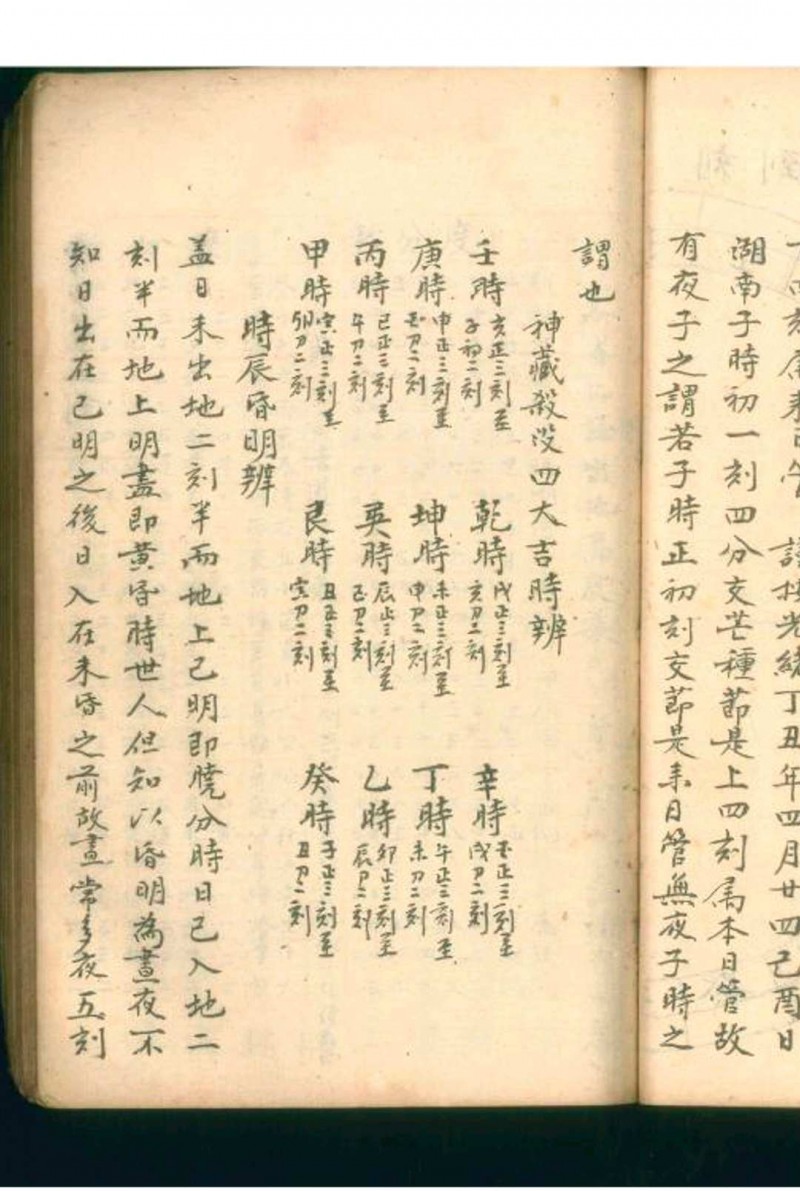 四刻屬来日管 請按光緒丁丑年四月廿四己酉日
湖南子時初一刻四分交芒種節是上四刻屬本日管故
有夜子之謂若子時正初刻交節是来日管無夜子時之
謂也
神藏殺没四大吉時辨
壬時 亥正三刻至子初二刻 乾時 戌正三刻至亥刀二刻 辛時 酉正三刻至戌刀二刻
庚時 申正三刻至酉刀二刻 坤時 未正三刻至申刀二刻 丁時 午正三刻至未刀二刻
丙時 巳正三刻至午刀二刻 巽時 辰正三刻至巳刀二刻 乙時 卯正三刻至辰刀二刻
甲時 寅正三刻至卯刀二刻 艮時 丑正三刻至寅刀二刻 癸時 子正三刻至丑刀二刻
時辰昏明辨
盖日未出地二刻半而地上已明即曉分時日已入地二
刻半而地上明盡即黄昏時世人但知以昏明為晝夜不
知日出在已明之後日入在未昏之前故晝常多夜五刻